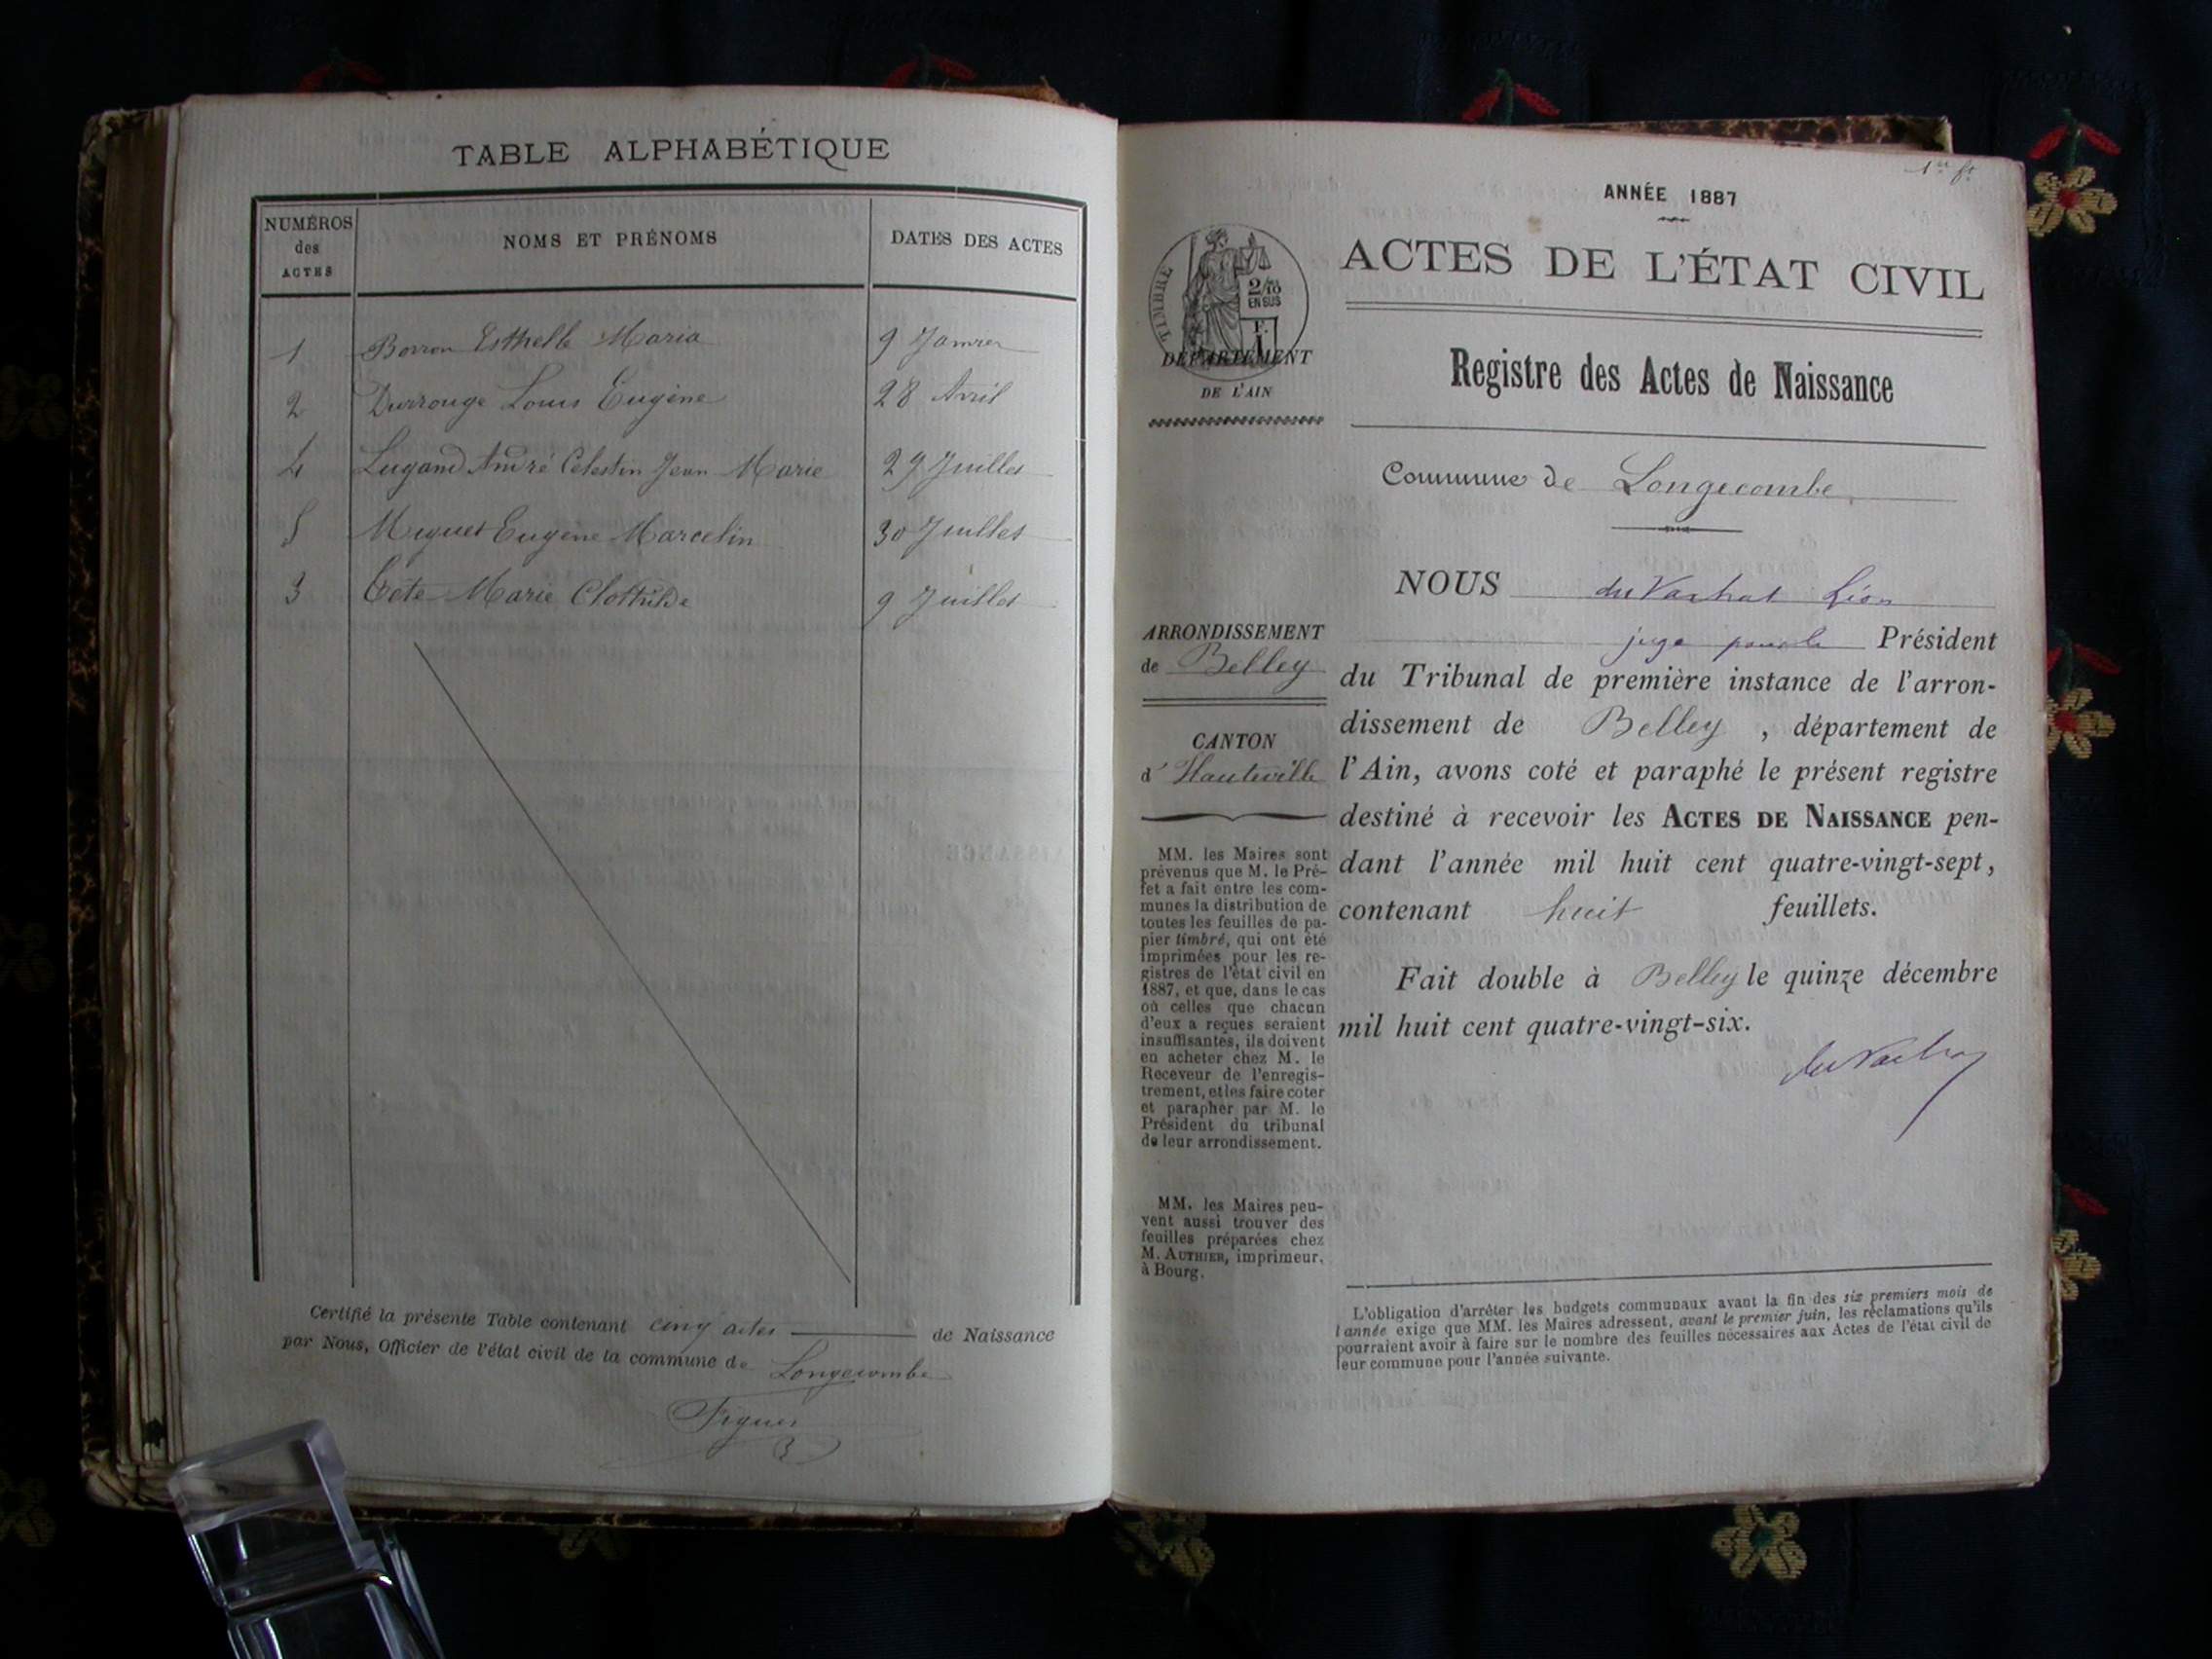 TABLE ALPHABÉTIQUE
NUMÉROS des ACTES NOMS ET PRÉNOMS DATES DES ACTES
1 Borron Esthelle Maria 9 Janvier
2 Durrouge Louis Eugène 28 Avril
4 Lugand André Célestin Jean Marie 29 Juillet
5 Miguet Eugène Marcelin 30 Juillet
3 Tête Marie Clothilde 9 Juillet
Certifié la présente Table contenant cinq actes de Naissance
par Nous, Officier de l'état civil de la commune de Longecombe
Figuet
1er ft
ANNÉE 1887
ACTES DE L'ÉTAT CIVIL
TIMBRE
2/10
EN SUS
DÉPARTEMENT
DE L'AIN
Registre des Actes de Naissance
Commune de Longecombe
NOUS du Vachat Léon
juge pour le Président
du Tribunal de première instance de l'arron-
dissement de Belley, département de
l'Ain, avons coté et paraphé le présent registre
destiné à recevoir les ACTES DE NAISSANCE pen-
dant l'année mil huit cent quatre-vingt-sept,
contenant huit feuillets.
Fait double à Belley le quinze décembre
mil huit cent quatre-vingt-six.
du Vachat
ARRONDISSEMENT
de Belley
CANTON
d'Hauteville
MM. les Maires sont
prévenus que M. le Pré-
fet a fait entre les com-
munes la distribution de
toutes les feuilles de pa-
pier timbré, qui ont été
imprimées pour les re-
gistres de l'état civil en
1887, et que, dans le cas
où celles que chacun
d'eux a reçues seraient
insuffisantes, ils doivent
en acheter chez M. le
Receveur de l'enregis-
trement, et les faire coter
et parapher par M. le
Président du tribunal
de leur arrondissement.
MM. les Maires peu-
vent aussi trouver des
feuilles préparées chez
M. AUTHIER, imprimeur,
à Bourg.
L'obligation d'arrêter les budgets communaux avant la fin des six premiers mois de
l'année exige que MM. les Maires adressent, avant le premier juin, les réclamations qu'ils
pourraient avoir à faire sur le nombre des feuilles nécessaires aux Actes de l'état civil de
leur commune pour l'année suivante.